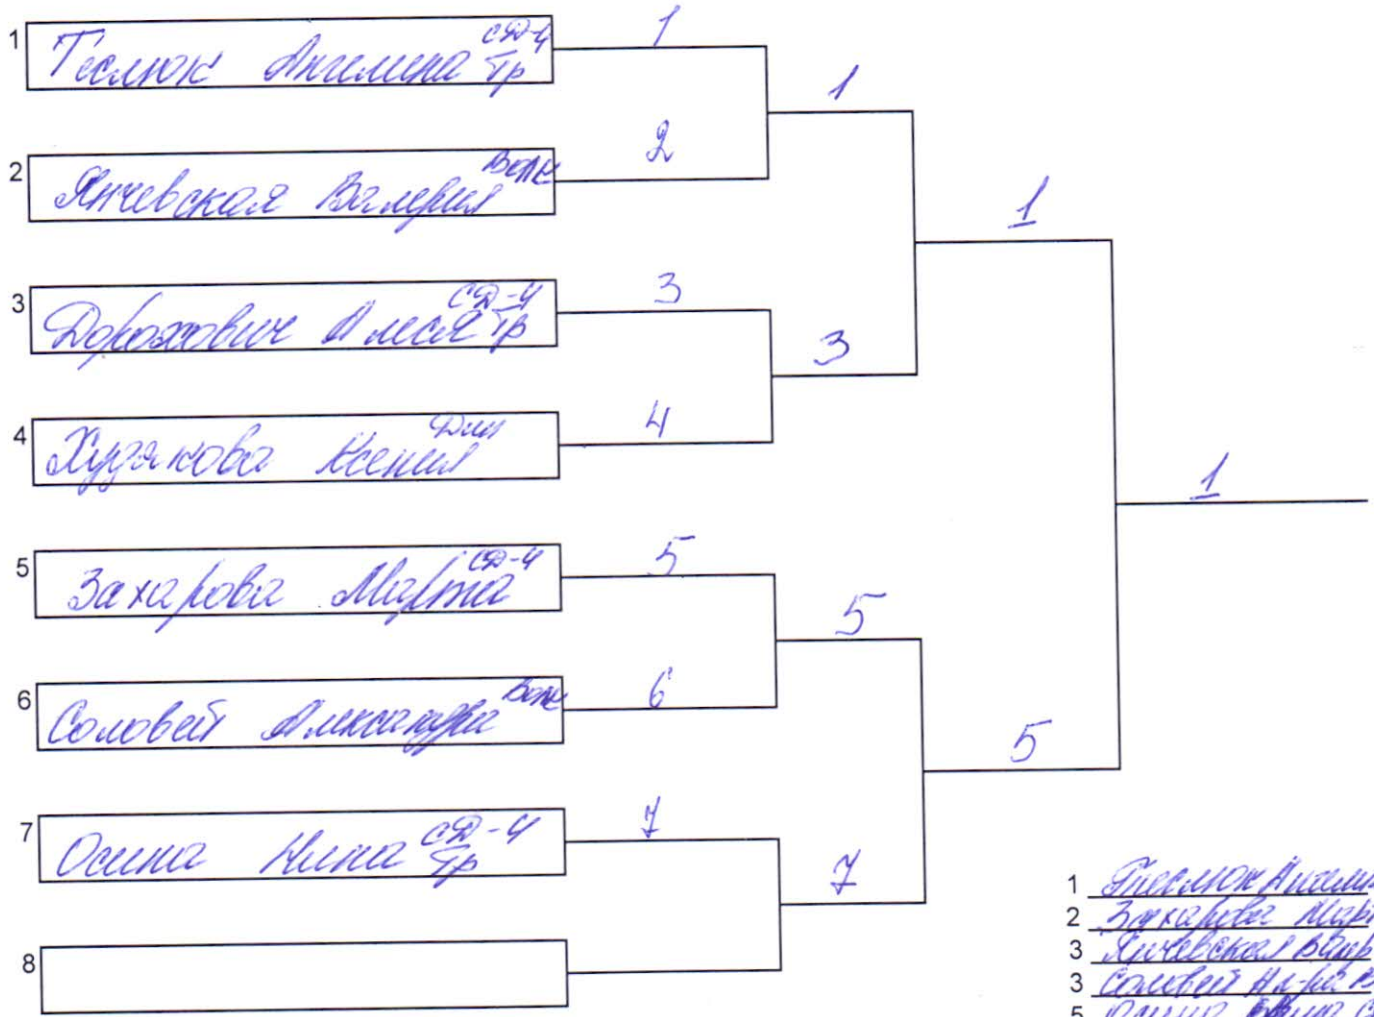 1 Теслюк Ангелина СД-Ч Тр
1
1
2 Янчевская Валерия Волк
2
1
3 Дорохович Алеся СД-Ч Тр
3
3
4 Худякова Ксения Дин
4
1
5 Захарова Марта СД-Ч
5
5
6 Соловей Александра Волк
6
5
7 Осина Нина СД-Ч Тр
7
7
8
1 Теслюк Ангелин
2 Захарова Мар
3 Янчевская
3 Соловей Ал-ра В
5 Осина